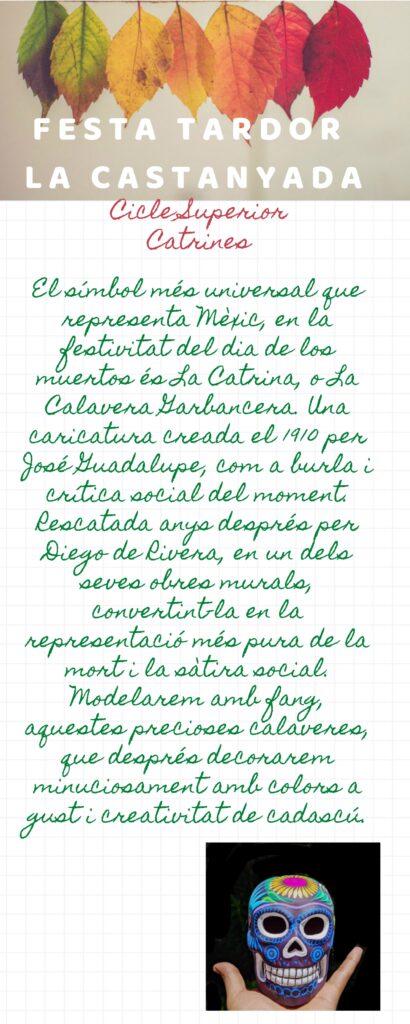 FESTA TARDOR
LA CASTANYADA
Cicle Superior
Catrines
El símbol més universal que
representa Mèxic, en la
festivitat del dia de los
muertos és La Catrina, o La
Calavera Garbancera. Una
caricatura creada el 1910 per
José Guadalupe, com a burla i
crítica social del moment.
Rescatada anys després per
Diego de Rivera, en un dels
seves obres murals,
convertint-la en la
representació més pura de la
mort i la sàtira social.
Modelarem amb fang,
aquestes precioses calaveres,
que després decorarem
minuciosament amb colors a
gust i creativitat de cadascú.